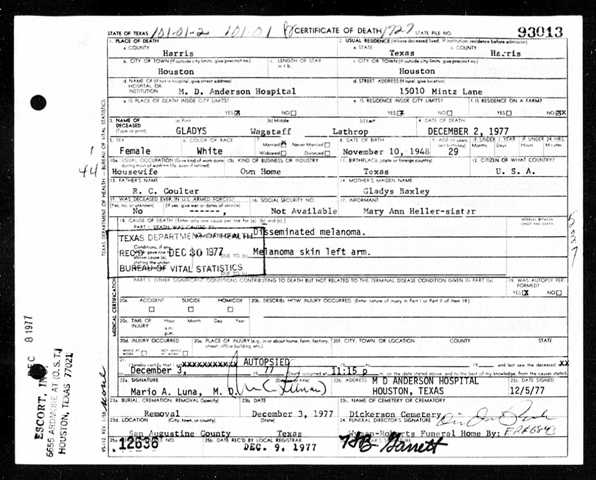 STATE OF TEXAS 101-01-2 101.01 CERTIFICATE OF DEATH 1727 STATE FILE NO. 93013
1. PLACE OF DEATH 2. USUAL RESIDENCE (Where deceased lived. If institution: residence before admission)
a. COUNTY a. STATE b. COUNTY
Harris Texas Harris
b. CITY OR TOWN (If outside city limits, give precinct no.) c. LENGTH OF STAY c. CITY OR TOWN (If outside city limits, give precinct no.)
Houston Houston
d. NAME OF (If not in hospital, give street address) d. STREET ADDRESS (If rural, give location)
HOSPITAL OR
INSTITUTION M. D. Anderson Hospital 15010 Mintz Lane
e. IS PLACE OF DEATH INSIDE CITY LIMITS? e. IS RESIDENCE INSIDE CITY LIMITS? f. IS RESIDENCE ON A FARM?
YES NO YES NO YES NO
3. NAME OF DECEASED (a) First (b) Middle (c) Last 4. DATE OF DEATH
(Type or print) GLADYS Wagstaff Lathrop DECEMBER 2, 1977
5. SEX 6. COLOR OR RACE 7. Married Never Married 8. DATE OF BIRTH 9. AGE IF UNDER 1 YEAR IF UNDER 24 HRS.
Female White Widowed Divorced November 10, 1948 29
10a. USUAL OCCUPATION 10b. KIND OF BUSINESS OR INDUSTRY 11. BIRTHPLACE (State or foreign country) 12. CITIZEN OF WHAT COUNTRY?
44
Housewife Own Home Texas U. S. A.
13. FATHER'S NAME 14. MOTHER'S MAIDEN NAME
R. C. Coulter Gladys Baxley
15. WAS DECEASED EVER IN U.S. ARMED FORCES? 16. SOCIAL SECURITY NO. 17. INFORMANT
No Not Available Mary Ann Heller-sister
18. CAUSE OF DEATH
PART I. DEATH WAS CAUSED BY:
Disseminated melanoma.
TEXAS DEPARTMENT OF HEALTH
REC'D DEC 30 1977
Melanoma skin left arm.
BUREAU OF VITAL STATISTICS
PART II. OTHER SIGNIFICANT CONDITIONS CONTRIBUTING TO DEATH BUT NOT RELATED TO THE TERMINAL DISEASE CONDITION GIVEN IN PART I 19. WAS AUTOPSY PERFORMED?
YES NO
20a. ACCIDENT SUICIDE HOMICIDE 20b. DESCRIBE HOW INJURY OCCURRED.
20c. TIME OF INJURY Hour Month Day Year
20d. INJURY OCCURRED 20e. PLACE OF INJURY 20f. CITY, TOWN, OR LOCATION COUNTY STATE
AUTOPSIED
December 3, 77 11:15 p
22a. SIGNATURE 22b. ADDRESS M D ANDERSON HOSPITAL
Mario A. Luna, M. D. HOUSTON, TEXAS 12/5/77
23a. BURIAL, CREMATION, REMOVAL (Specify) 23b. DATE 23c. NAME OF CEMETERY OR CREMATORY
Removal December 3, 1977 Dickerson Cemetery
23d. LOCATION 24. FUNERAL DIRECTOR'S SIGNATURE
San Augustine County Texas Funeral Home By:
12636 DEC. 9, 1977
DEC 8 1977
ESCORT, INC.
6655 ARDMORE AT O.S.T.
HOUSTON, TEXAS 77021
TEXAS DEPARTMENT OF HEALTH - BUREAU OF VITAL STATISTICS
MEDICAL CERTIFICATION